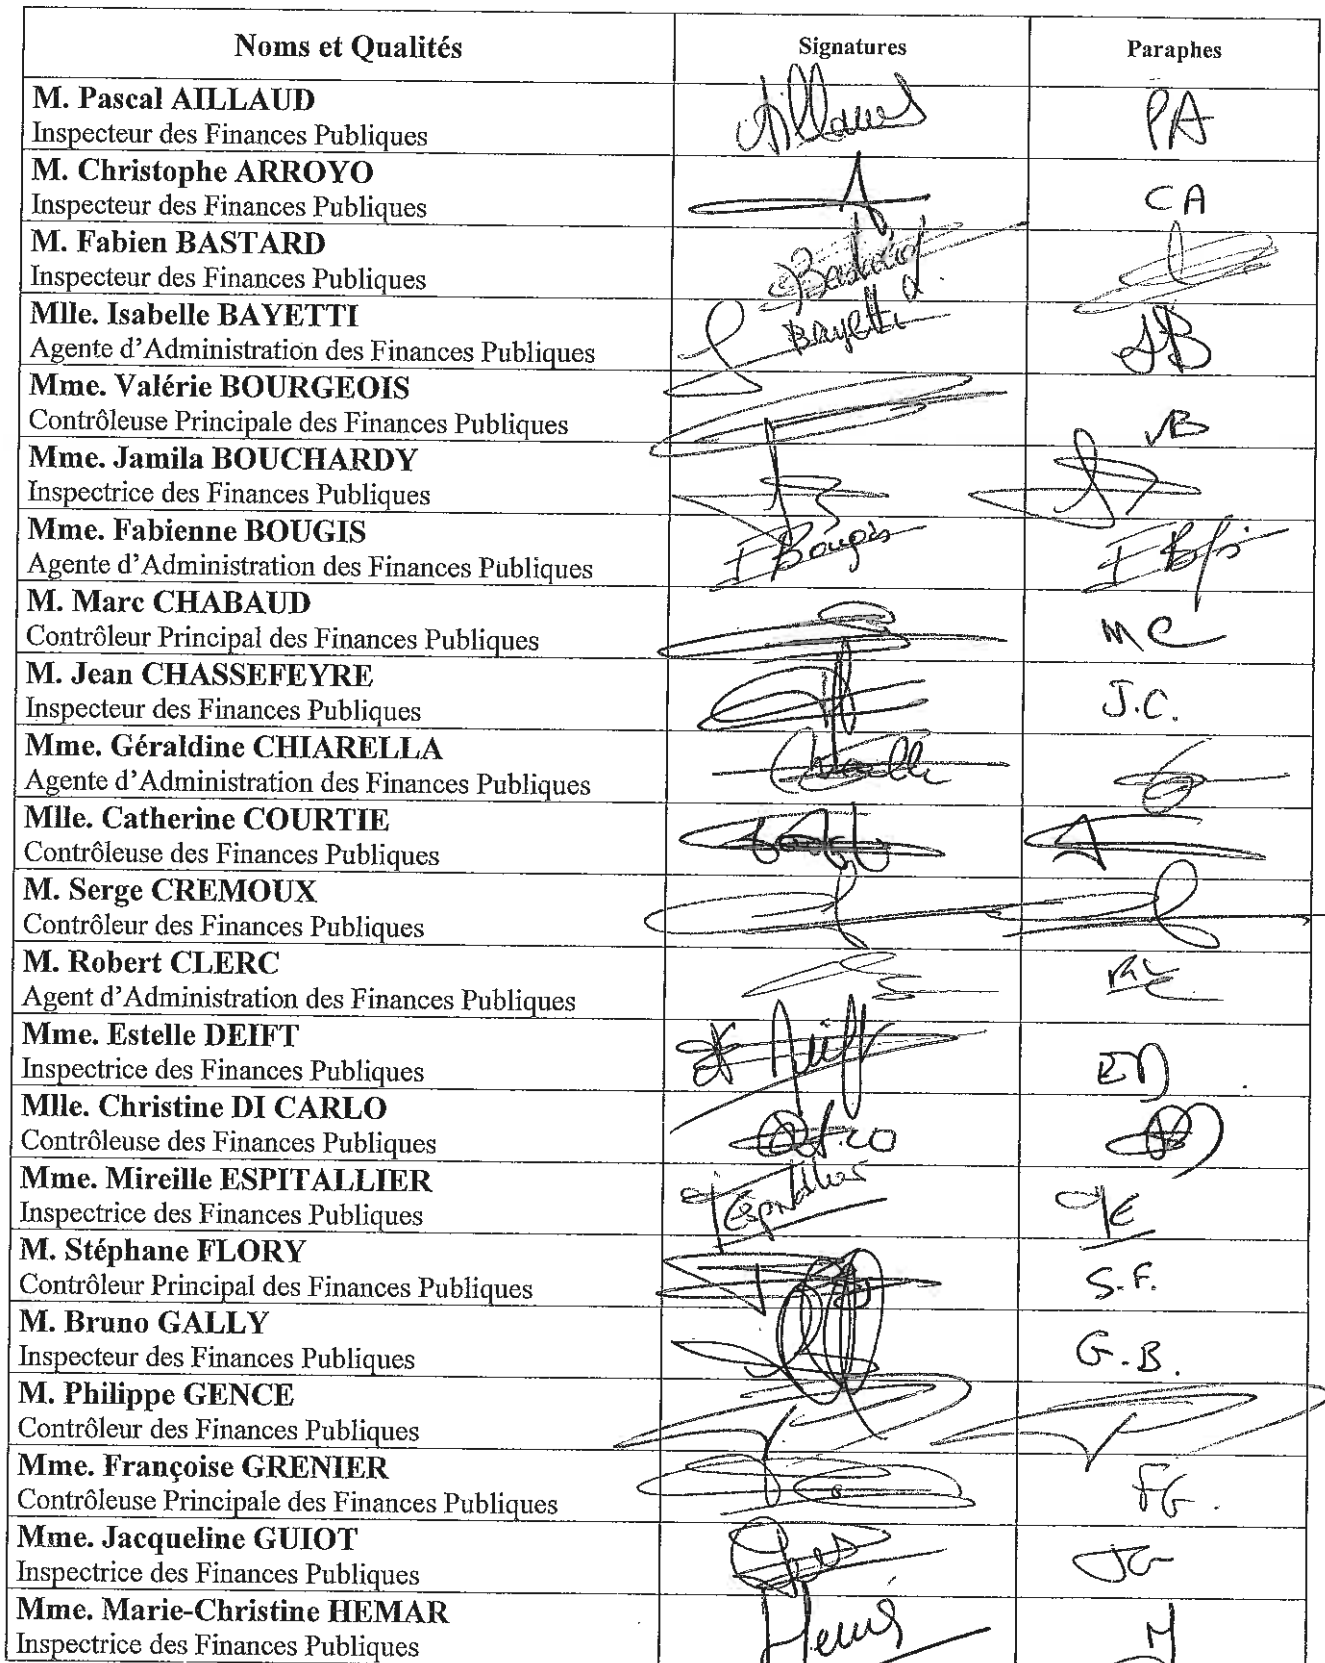 Noms et Qualités Signatures Paraphes
M. Pascal AILLAUD
Inspecteur des Finances Publiques
Aillaud PA
M. Christophe ARROYO
Inspecteur des Finances Publiques
CA
M. Fabien BASTARD
Inspecteur des Finances Publiques
Bastard
Mlle. Isabelle BAYETTI
Agente d'Administration des Finances Publiques
Bayetti IB
Mme. Valérie BOURGEOIS
Contrôleuse Principale des Finances Publiques
VB
Mme. Jamila BOUCHARDY
Inspectrice des Finances Publiques
Mme. Fabienne BOUGIS
Agente d'Administration des Finances Publiques
F Bougis
M. Marc CHABAUD
Contrôleur Principal des Finances Publiques
MC
M. Jean CHASSEFEYRE
Inspecteur des Finances Publiques
J.C.
Mme. Géraldine CHIARELLA
Agente d'Administration des Finances Publiques
Mlle. Catherine COURTIE
Contrôleuse des Finances Publiques
M. Serge CREMOUX
Contrôleur des Finances Publiques
M. Robert CLERC
Agent d'Administration des Finances Publiques
Mme. Estelle DEIFT
Inspectrice des Finances Publiques
Deift ED
Mlle. Christine DI CARLO
Contrôleuse des Finances Publiques
Mme. Mireille ESPITALLIER
Inspectrice des Finances Publiques
M. Stéphane FLORY
Contrôleur Principal des Finances Publiques
S.F.
M. Bruno GALLY
Inspecteur des Finances Publiques
G.B.
M. Philippe GENCE
Contrôleur des Finances Publiques
Mme. Françoise GRENIER
Contrôleuse Principale des Finances Publiques
FG.
Mme. Jacqueline GUIOT
Inspectrice des Finances Publiques
JG
Mme. Marie-Christine HEMAR
Inspectrice des Finances Publiques